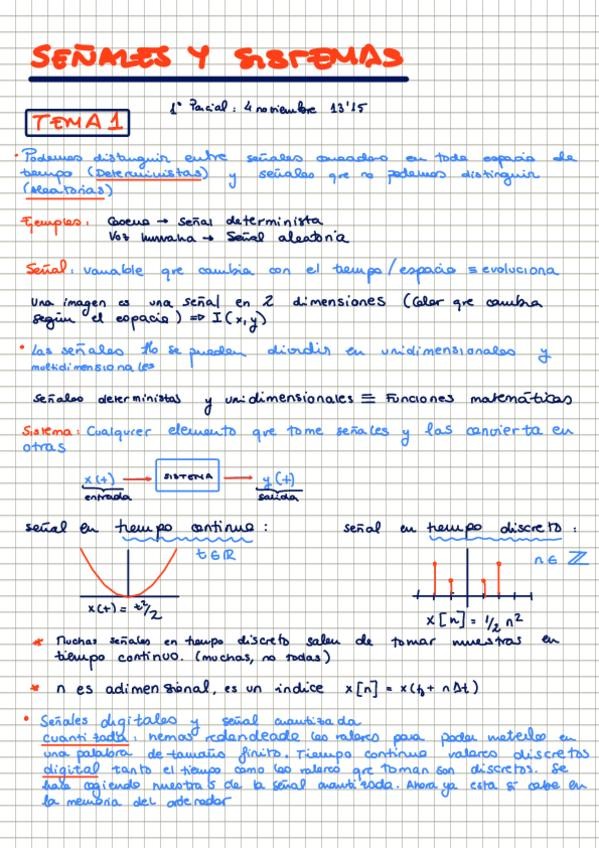 SEÑALES Y SISTEMAS
1º Parcial: 4 noviembre 13'15
TEMA 1
• Podemos distinguir entre señales en todo espacio de
tiempo (Deterministas) y señales que no podemos distinguir
(Aleatorias)
Ejemplos: → Señal determinista
Voz humana → Señal aleatoria
Señal: variable que cambia con el tiempo/espacio ≡ evoluciona
Una imagen es una señal en 2 dimensiones (Color que cambia
según el espacio) => I(x,y)
• Las señales se pueden dividir en unidimensionales y
multidimensionales
Señales deterministas y unidimensionales ≡ Funciones matemáticas
Sistema: Cualquier elemento que tome señales y las convierta en
otras
x(t) → SISTEMA → y(t)
entrada salida
señal en tiempo continuo: señal en tiempo discreto:
t ∈ ℝ n ∈ ℤ
x(t) = t²/2 x[n] = 1/2 n²
* Muchas señales en tiempo discreto salen de tomar muestras en
tiempo continuo. (muchas, no todas)
* n es adimensional, es un indice x[n] = x(t₀ + nΔt)
• Señales digitales y señal cuantizada
cuantizada: hemos redondeado los valores para poder meterlos en
una palabra de tamaño finito. Tiempo continuo valores discretos
digital tanto el tiempo como los valores que toman son discretos. Se
hace cogiendo muestras de la señal cuantizada. Ahora ya esta si cabe en
la memoria del ordenador